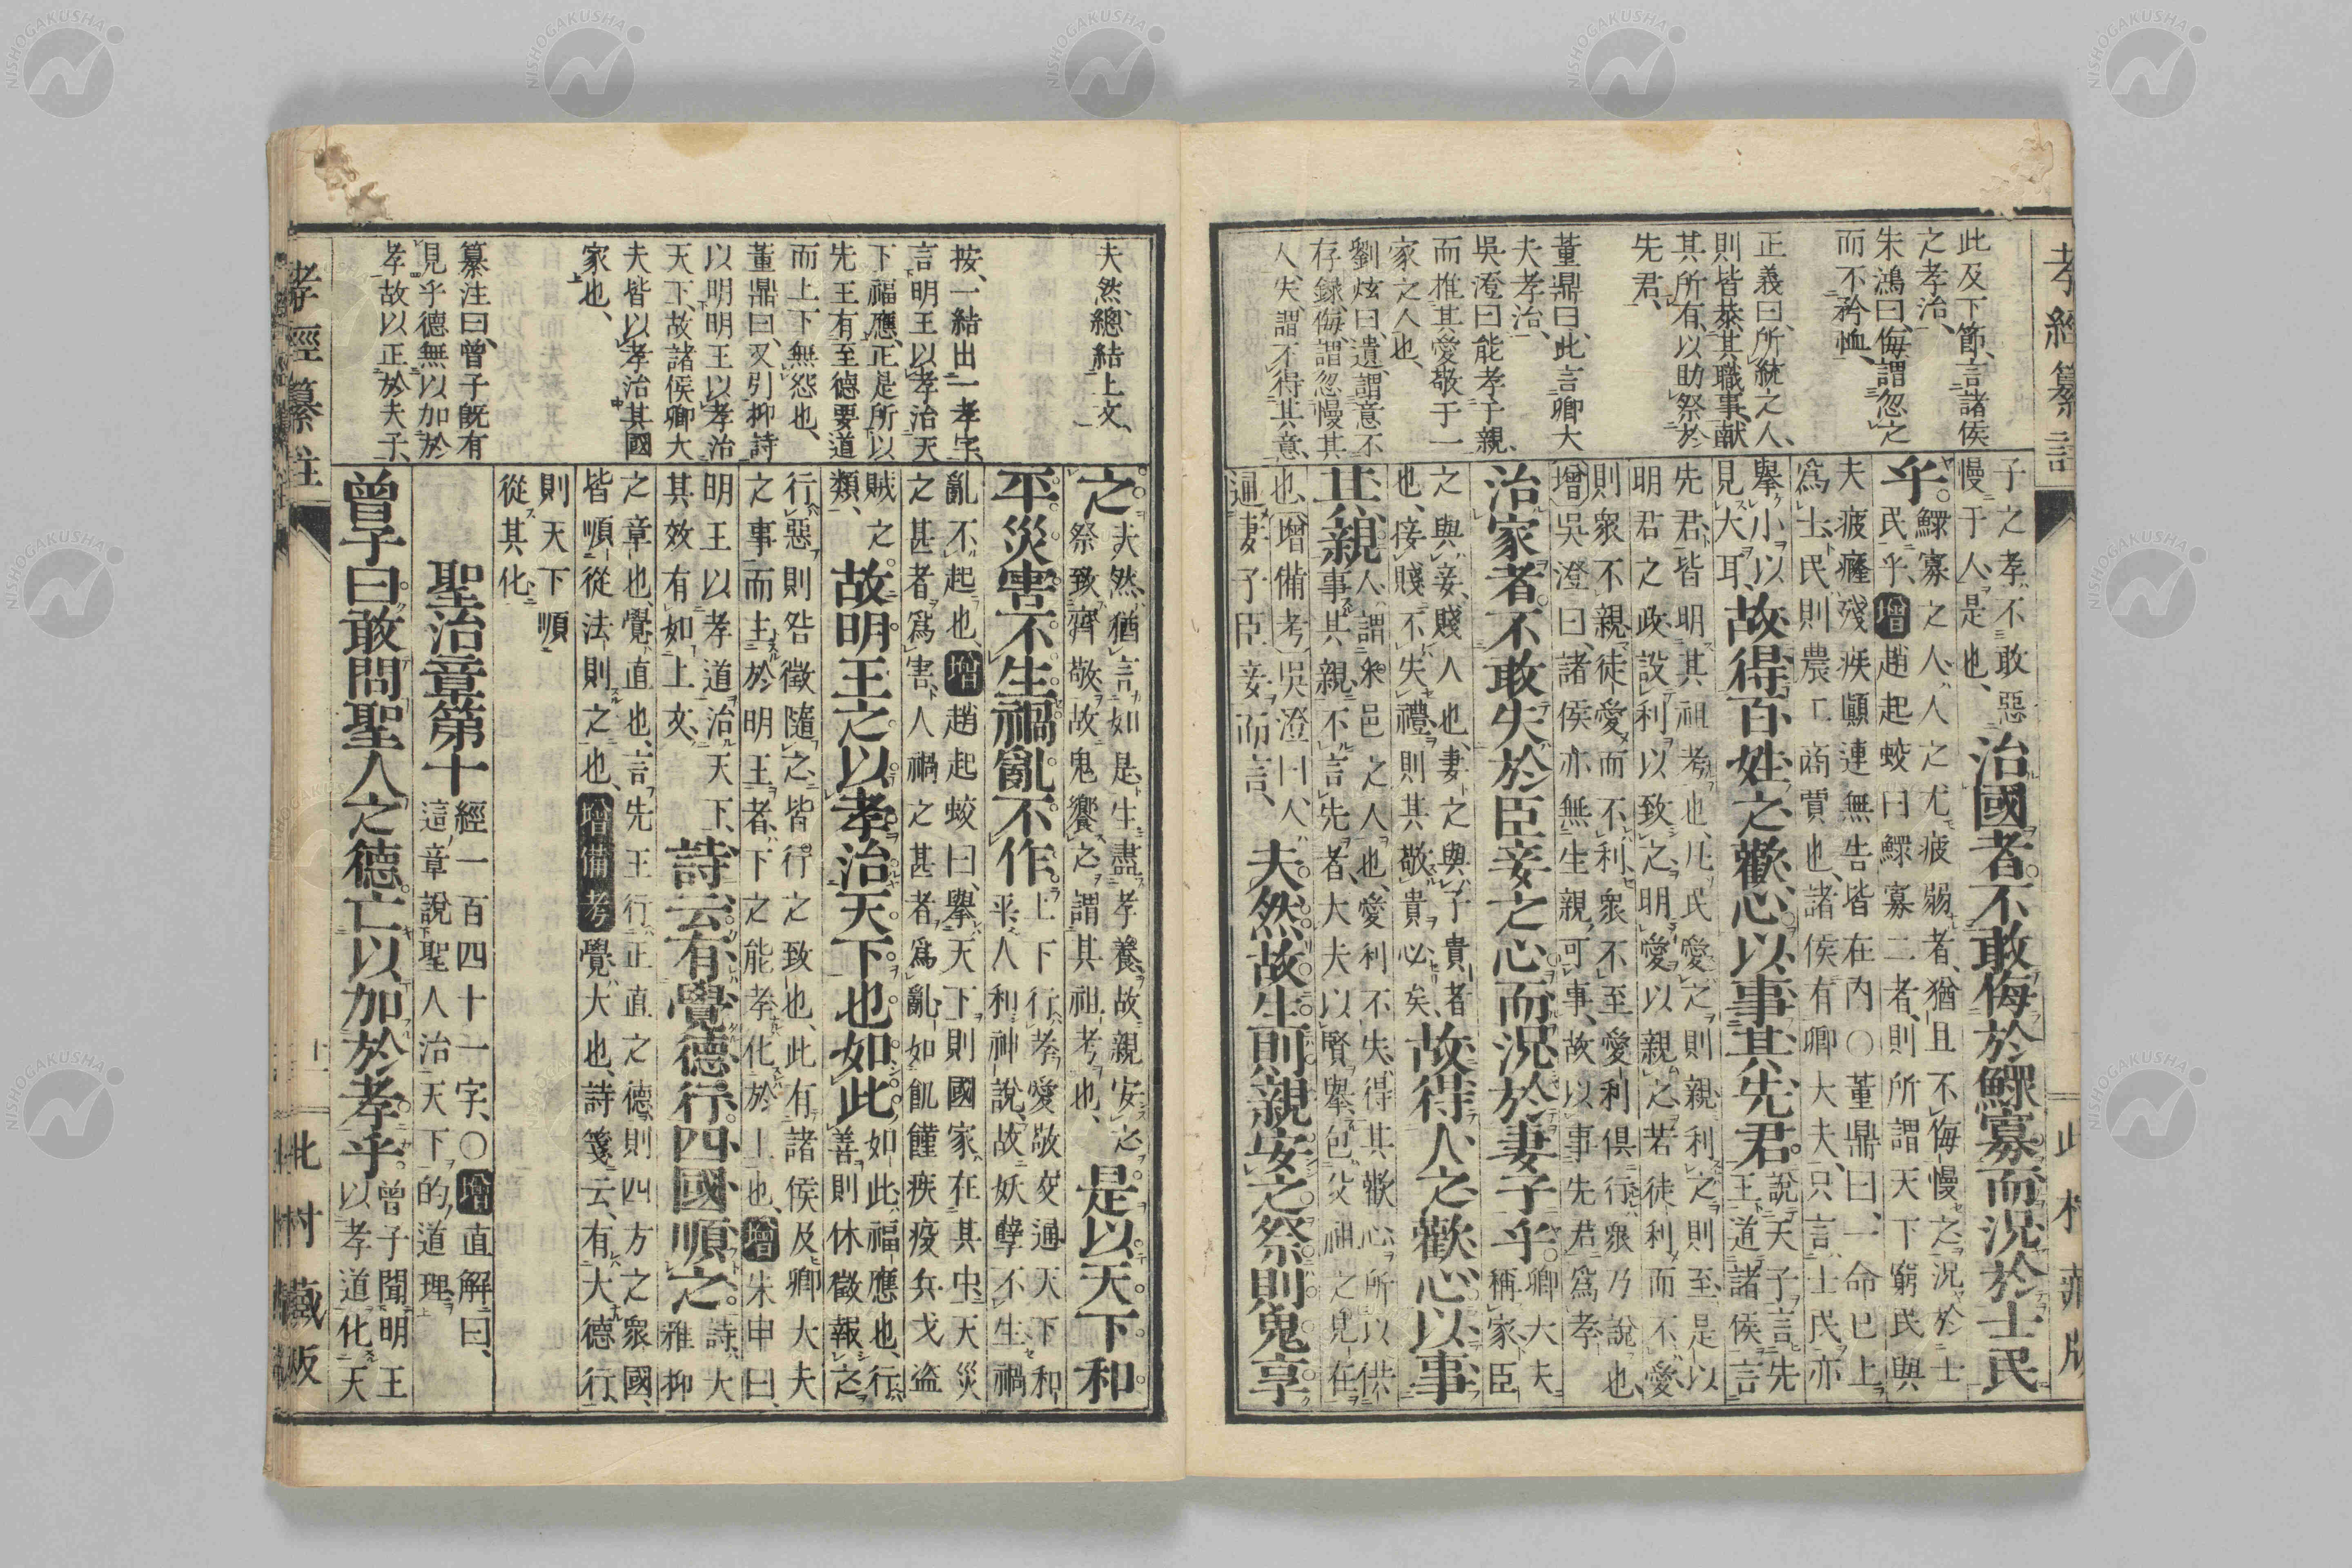 孝經纂註
北村藏版
此及下節、言諸侯
之孝治、
朱鴻曰、侮謂忽之
而不矜恤、
正義曰、所統之人、
則皆恭其職事、獻
其所有、以助祭於
先君、
董鼎曰、此言卿大
夫孝治、
吳澄曰能孝于親、
而推其愛敬于一
家之人也、
劉炫曰、遺、謂意不
存録、侮謂忽慢其
人、失、謂不得其意、
子之孝、不敢惡
慢于人、是也、
治國者。不敢侮於鰥寡而況於士民
乎。
鰥寡之人、人之尤疲弱者、猶且不侮慢之、況於士
民乎、增趙起蛟曰鰥寡二者、則所謂天下窮民與
夫疲癃殘疾顚連無告皆在內〇董鼎曰、一命已上
爲士、民則農工商賈也、諸侯有卿大夫、只言士民亦
舉小以
見大耳、
故得百姓之歡心、以事其先君。
說天子言先
王、道諸侯言
先君、皆明其祖考也、凡民愛之則親、利之則至、是以
明君之政、設利以致之、明愛以親之、若徒利而不愛
則衆不親、徒愛而不利、衆不至、愛利俱行、衆乃說也、
增吳澄曰、諸侯亦無生親可事、故以事先君爲孝
治家者。不敢失於臣妾之心。而況於妻子乎。
卿大夫
稱家、臣
之與妾、賤人也、妻之與子、貴者
也、接賤不失禮、則其敬貴必矣、
故得人之歡心、以事
其親。
人、謂采邑之人也、愛利不失、得其歡心、所以供
事其親、不言先者、大夫以賢舉、包父祖之見在
也、增備考吳澄曰人
通妻子臣妾而言、
夫然。故生則親安之。祭則鬼享
夫然、總結上文、
按、一結出一孝字、
言明王以孝治天
下福應、正是所以
先王有至德要道
而上下無怨也、
董鼎曰、又引抑詩
以明明王以孝治
天下、故諸侯卿大
夫皆以孝治其國
家也、
纂注曰、曾子旣有
見乎德無以加於
孝、故以正於夫子、
之。
夫然、猶言如是、生盡孝養、故親安之、
祭致齊敬、故鬼饗之、謂其祖考也、
是以天下和
平。災害不生。禍亂不作。
上下行孝、愛敬交通、天下和
平、人和神說、故妖孽不生、禍
亂不起也、增趙起蛟曰、舉天下則國家在其中、天災
之甚者爲害、人禍之甚者爲亂、如飢饉疾疫兵戈盜
賊之
類、
故明王之以孝治天下也如此。
如此福應也、行
善則休徵報之
行惡則咎徵隨之、皆行之致也、此有諸侯及卿大夫
之事、而主於明王者、下之能孝、化於上也、增朱申曰、
明王以孝道治天下、
其效有如上文、
詩云有覺德行。四國順之。
詩大
雅抑
之章也、覺直也、言先王行正直之德、則四方之衆國、
皆順從法則之也、增備考覺、大也、詩箋云、有大德行、
則天下順
從其化、
聖治章第十
經一百四十一字、〇增直解曰、
這章說聖人治天下的道理
曾子曰敢問聖人之德。亡以加於孝乎。
曾子聞明王
以孝道化天
孝經纂註
十一
北村藏版